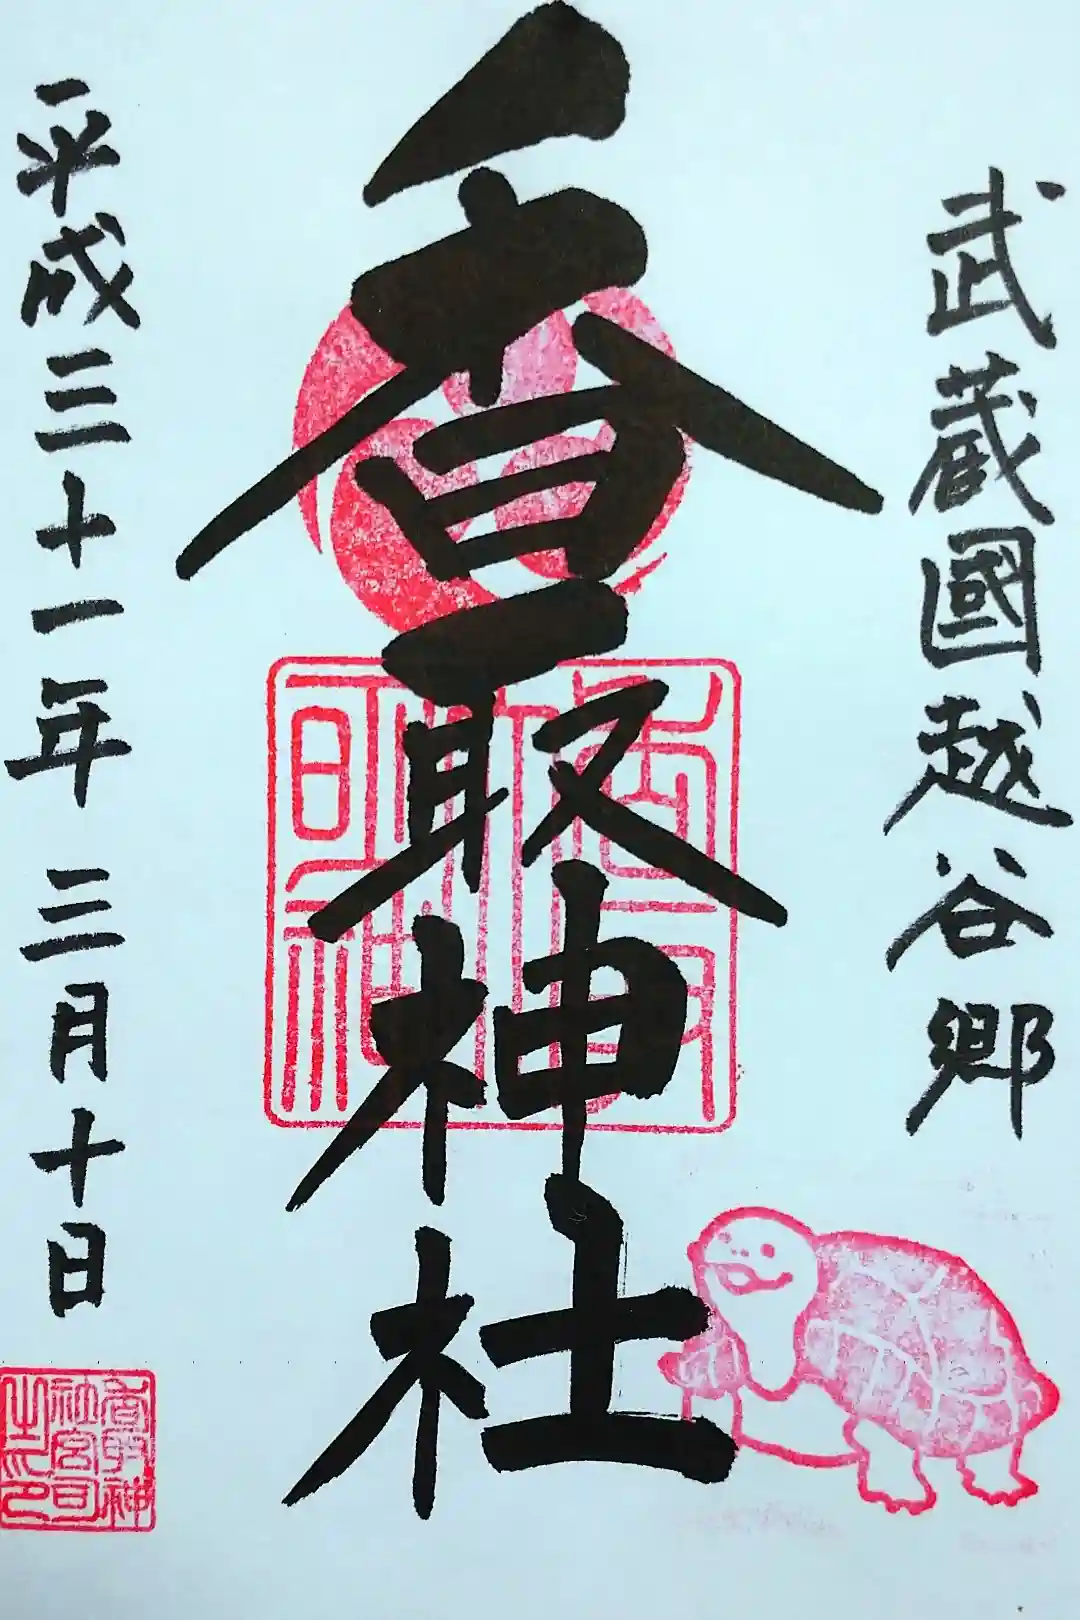 武蔵國越谷郷
香取神社
平成三十一年三月十日
香取神
社宮司
之印